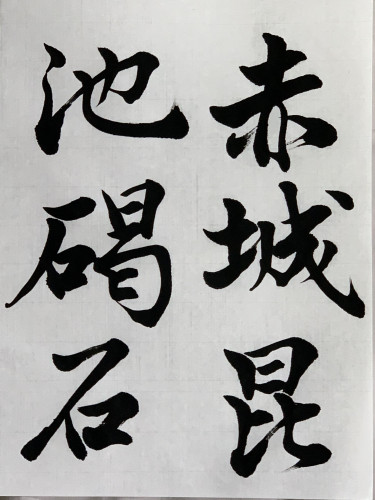 赤城昆
池碣石